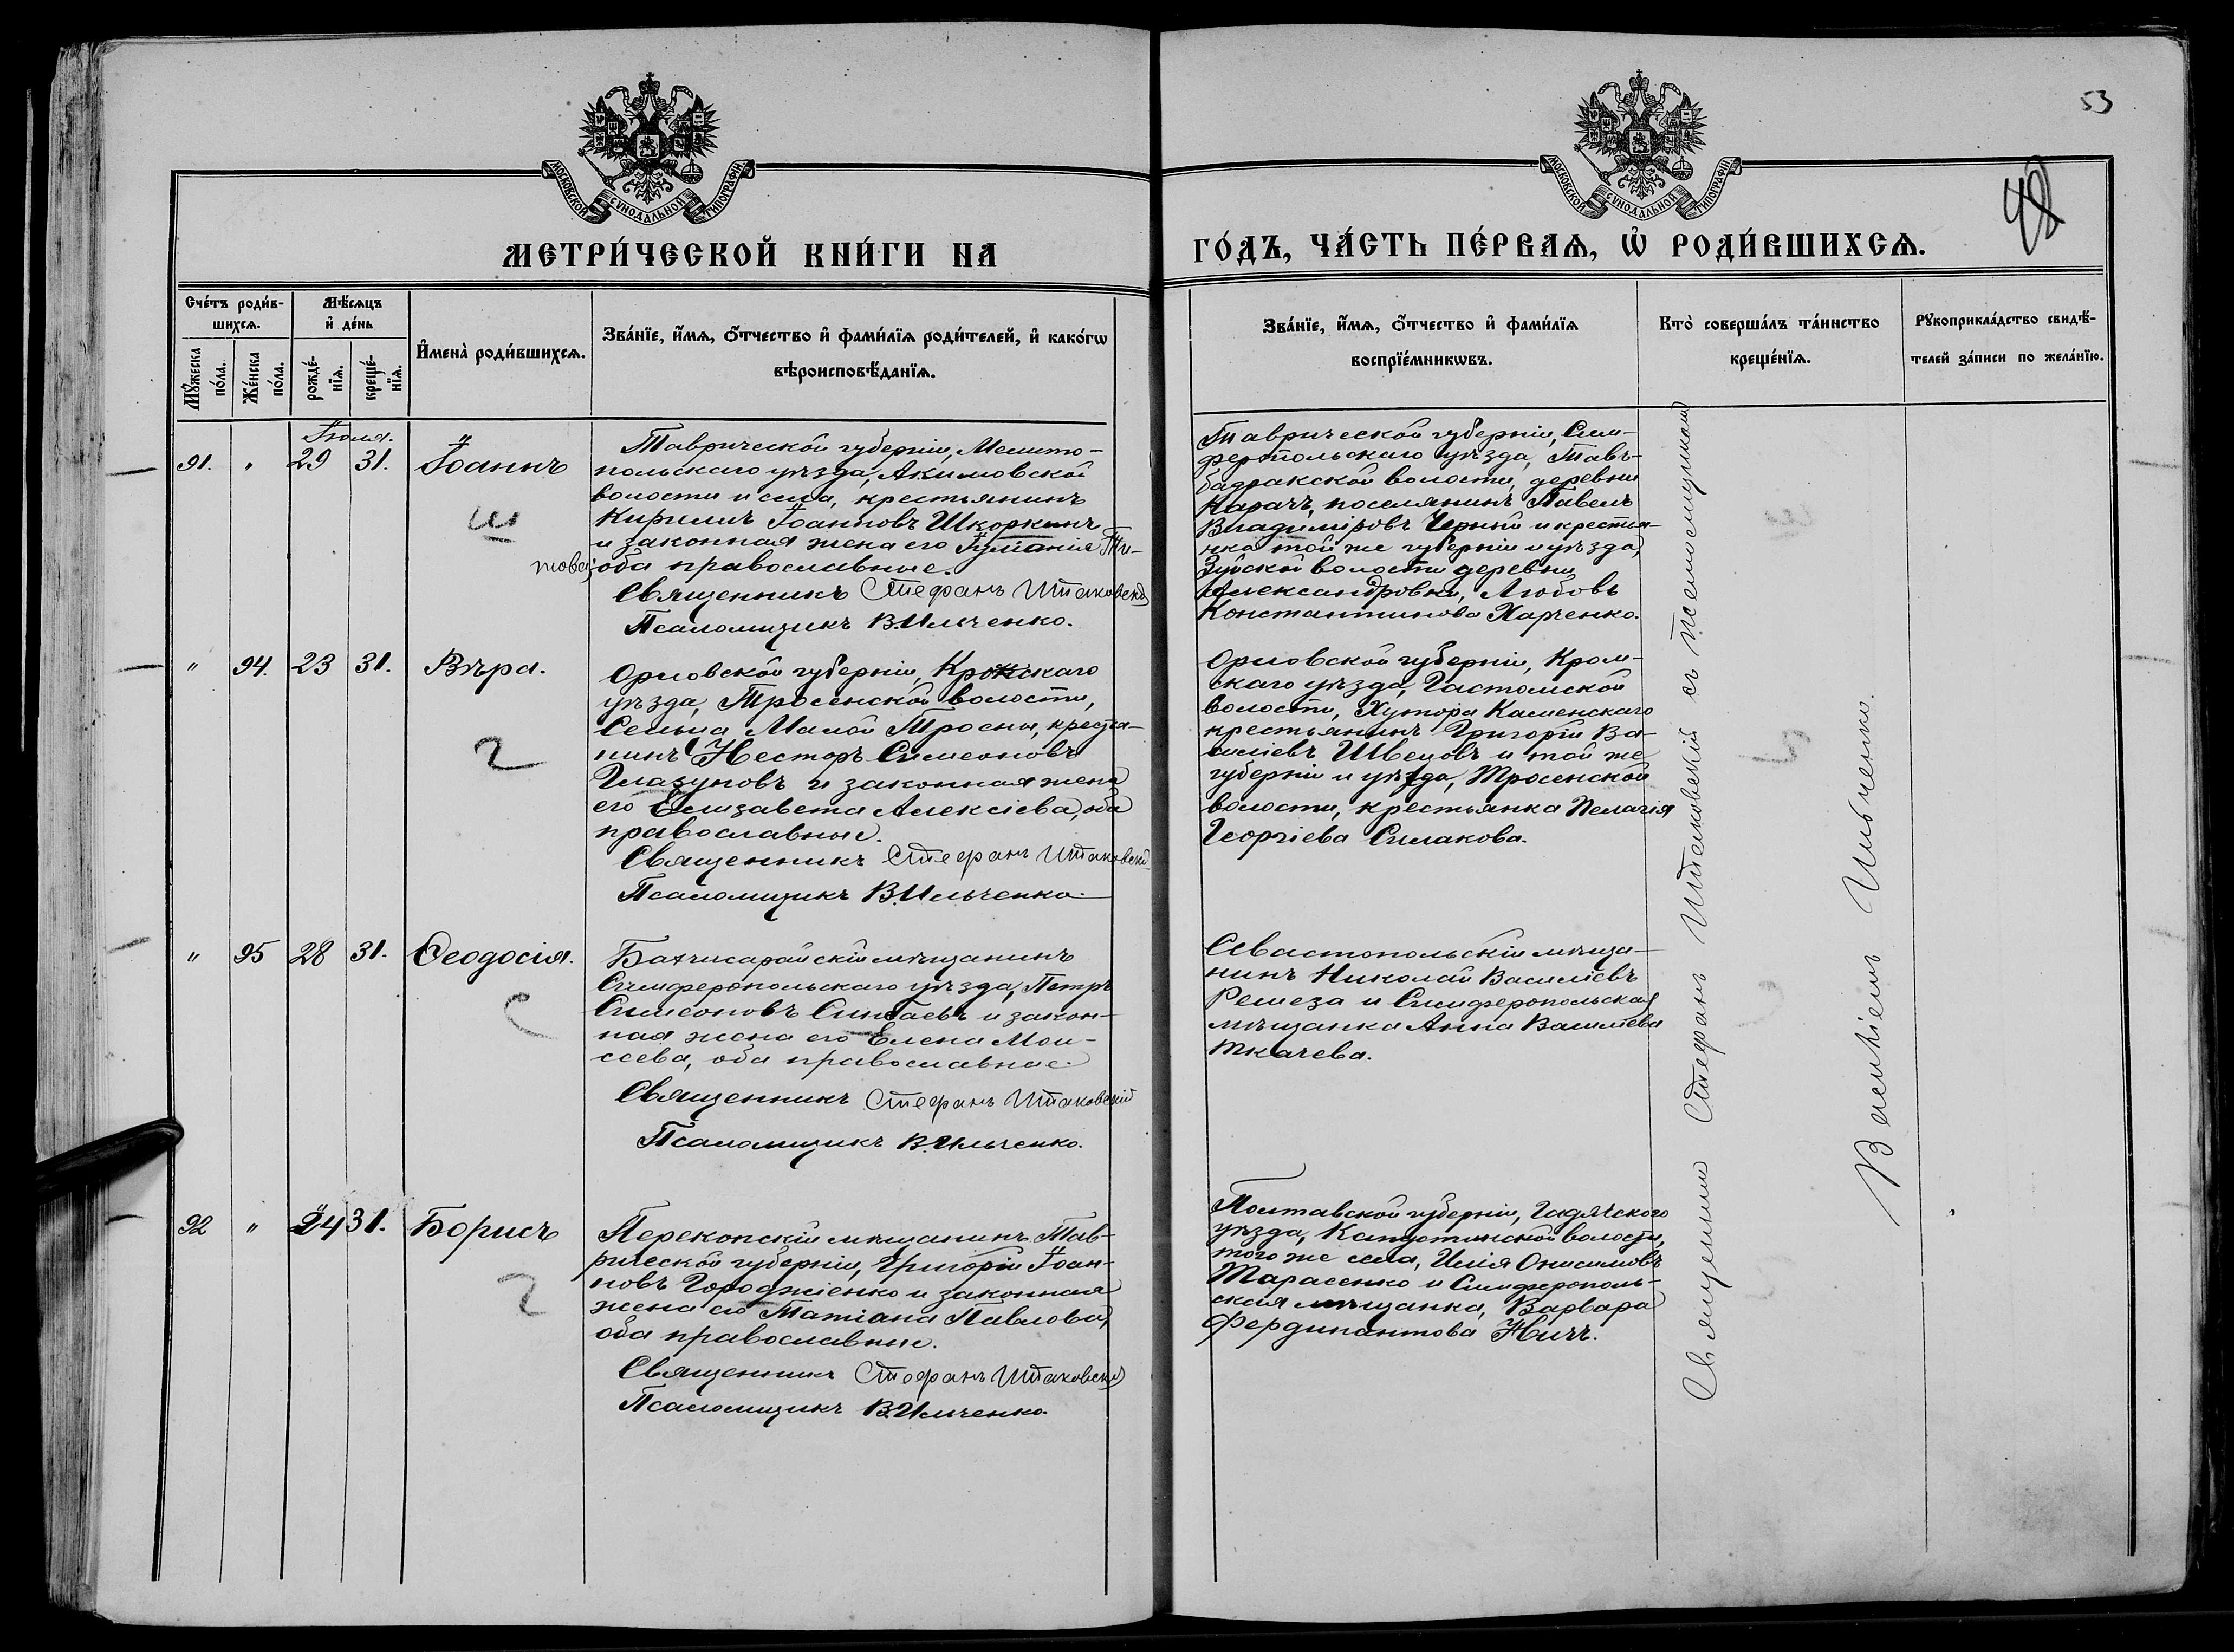 53
48
МОСКОВСКОЙ СѴНОДАЛЬНОЙ ТИПОГРАФІИ
МОСКОВСКОЙ СѴНОДАЛЬНОЙ ТИПОГРАФІИ
МЕТРИ́ЧЕСКОЙ КНИ́ГИ НА
ГО́ДЪ, ЧА́СТЬ ПЕ́РВАѦ, Ѡ҆ РОДИ́ВШИХСѦ.
Сче́тъ роди́в-
шихсѧ.
Мꙋ́жеска по́ла.
Же́нска по́ла.
Мѣ́сѧцъ
и҆ де́нь
рожде́-
нїѧ.
креще́-
нїѧ.
И҆мена̀ роди́вшихсѧ.
Зва́нїе, и҆́мѧ, ѻ҆́тчество и҆ фами́лїѧ роди́телей, и҆ како́гѡ
вѣроисповѣ́данїѧ.
Зва́нїе, и҆́мѧ, ѻ҆́тчество и҆ фами́лїѧ
воспрїе́мникѡвъ.
Кто̀ соверша́лъ та́инство
креще́нїѧ.
Рꙋкоприкла́дство свидѣ́-
телей за́писи по жела́нїю.
Іюля.
91. " 29 31. Іоаннъ
Таврической губерніи, Мелито-
польскаго уѣзда, Акимовской
волости и села, крестьянинъ
Кириллъ Іоанновъ Шкоркинъ
и законная жена его Іуліанія Ти-
това, оба православные.
Священникъ Стефанъ Штаковскій
Псаломщикъ В.Ильченко.
Таврической губерніи, Сим-
феропольскаго уѣзда, Тавъ-
бадракской волости, деревни
Карачъ, поселянинъ Павелъ
Владиміровъ Черный и крестья-
нка той же губерніи и уѣзда,
Зуйской волости деревни
Александровки, Любовь
Константинова Харченко.
" 94. 23 31. Вѣра.
Орловской губерніи, Кромскаго
уѣзда, Тросенской волости,
Сельца Малой Тросны, крестья-
нинъ Несторъ Симеоновъ
Глазуновъ и законная жена
его Елизавета Алексіева, оба
православные.
Священникъ Стефанъ Штаковскій
Псаломщикъ В.Ильченко
Орловской губерніи, Кром-
скаго уѣзда, Гастомской
волости, Хутора Каменскаго
крестьянинъ Григорій Ва-
силіевъ Швецовъ и той же
губерніи и уѣзда, Тросенской
волости, крестьянка Пелагія
Георгіева Силакова.
" 95 28 31. Ѳеодосія.
Бахчисарайскій мѣщанинъ
Симферопольскаго уѣзда, Петръ
Симеоновъ Синбаевъ и закон-
ная жена его Елена Мои-
сеева, оба православные.
Священникъ Стефанъ Штаковскій
Псаломщикъ В.Ильченко.
Севастопольскій мѣща-
нинъ Николай Василіевъ
Ремеза и Симферопольская
мѣщанка Анна Василіева
Ткачева.
92 " 24 31. Борисъ
Перекопскій мѣщанинъ Тав-
рической губерніи, Григорій Іоан-
новъ Городжіенко и законная
жена его Татіана Павлова,
оба православные.
Священникъ Стефанъ Штаковскій
Псаломщикъ В.Ильченко.
Полтавской губерніи, Гадячского
уѣзда, Капустинской волости,
того же села, Илія Онисимовъ
Тарасенко и Симферополь-
ская мѣщанка, Варвара
Фердинантова Ничъ.
Священникъ Стефанъ Штаковскій съ псаломщикомъ
Василіемъ Ильченко.